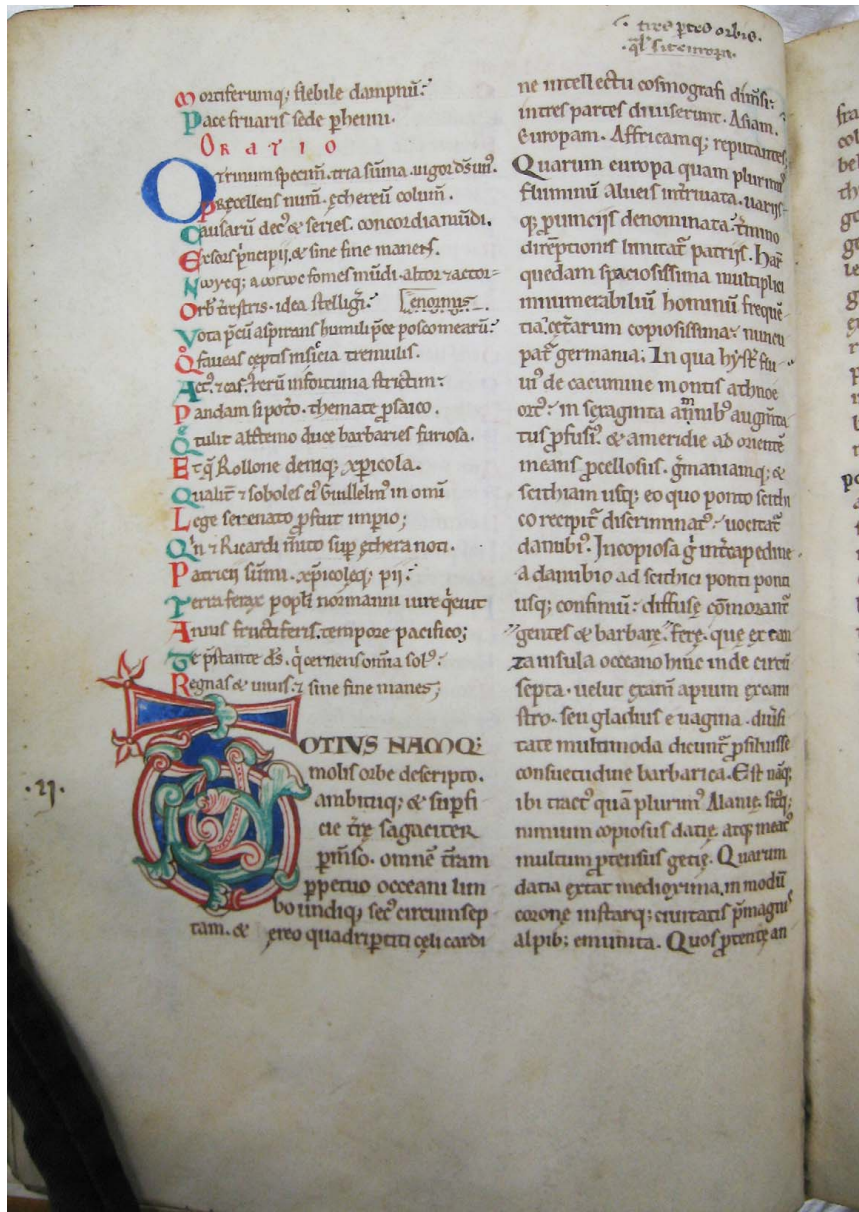 tres partes orbis.
Mortiferumq; flebile dampnū:
Pace fruaris sede p̱henni.
Oratio
O trinum specim̄. tria sūma. uigor ds̄ un᷒.
Pręcellens num̄. ęthereū colum̄.
Causarū dec᷒ & series. concordia mūdi.
Expers pͥncipii. & sine fine manens.
fomes mūdi. altor & actor
Orb᷒ tr̄estris. idea stelligr̄:
enormis
Vota p̄cū aspirans humili p̄ce posco mearū:
Qͦ faueas ceptis inscͥcia tremulis.
Act᷒. & cas᷒. rerū infortunia strictim:
Pandam si potͦo. themate ꝓsaico.
Qͤ tulit duce barbaries furiosa.
Et qͣ Rollone deniq; xp̄icola.
Qualit̄ & soboles ei᷒ Guillelm᷒ in omī
Lege serenato ꝓfuit imp̱io;
Qͥn & Ricardi mͥito sup̱ ęthera noti.
Patricii sūmi. xp̄icolęq; pii:
Terra ferax popl̄i normanni iure qͥeuit
Annis fructiferis. tempore pacifico;
Te p̄stante ds̄. qͥ cernens om̄ia sol᷒:
Regnas & uiuis. & sine fine manes;
TOTIVS NAMQ;
molis orbe descripto.
ambituq; & sup̱fi
cie tr̄ę sagaciter
p̱m̄so. omnē tr̄am
p̱petuo occeani lim
bo undiq; sec᷒ circumsep
tam. & ęreo quadrip̱titi cęli cardi
.21.
ne intellectu cosmografi dim̄si:
in tres partes diuiserunt. Asiam.
Europam. Affricamq; reputantes;
Quarum europa quam plurim᷒
fluminū alueis int̄riuata. uariis
q; ꝓuinciis denominata. t̄mino
dir̄ęptionis limitat᷑ patriis. Har᷑
quedam spaciosissima multiplici
innumerabiliū hominū frequē
tia. cęt̄arum copiosissima: nuncu
pat᷑ germania; In qua hyst̄ flu
ui᷒ de cacumine montis athnoe
ort᷒: in sexaginta amnib᷒ augm̄ta
tus ꝓfusi᷒. & a meridie ad orientē
means ꝓcellosus. gͬmaniamq; &
scithiam usq; eo quo ponto scithi
co recipit᷑ discriminat᷒: uocitat᷑
danubi᷒. In copiosa gͥ int̄capedine
a danubio ad scithici ponti
usq; confiniū: diffusę cōmorant᷑
gentes & barbarę. ferę. quę ex can
za insula occeano hinc inde circū
septa. uelut examͫ apium ex cani
stro. seu gladius e uagina. diūsi
tate multimoda dicunt᷑ ꝓsiluisse
consuetudine barbarica. Est nāq;
ibi tract᷒ quā plurim᷒ Alanię. sitq;
nimium copiosus datię. atq; meat᷒
multum ꝓtensus getię. Quarum
datia extat medioxima. in modū
coronę instarq; ciuitatis p̄magnis
alpib; emunita. Quos ꝓtentę an